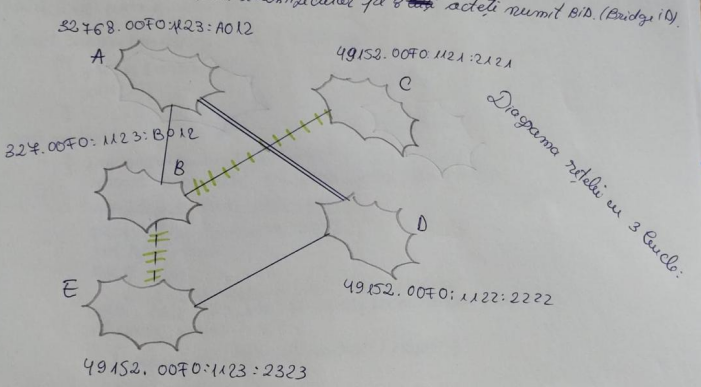 acteți numit BiD. (Bridge iD).
32768.00F0:1123:A012
A
49152.00F0:1121:2121
C
327.00F0:1123:B012
B
Diagrama rețelei cu 3 bucle:
D
49152.00F0:1122:2222
E
49152.00F0:1123:2323